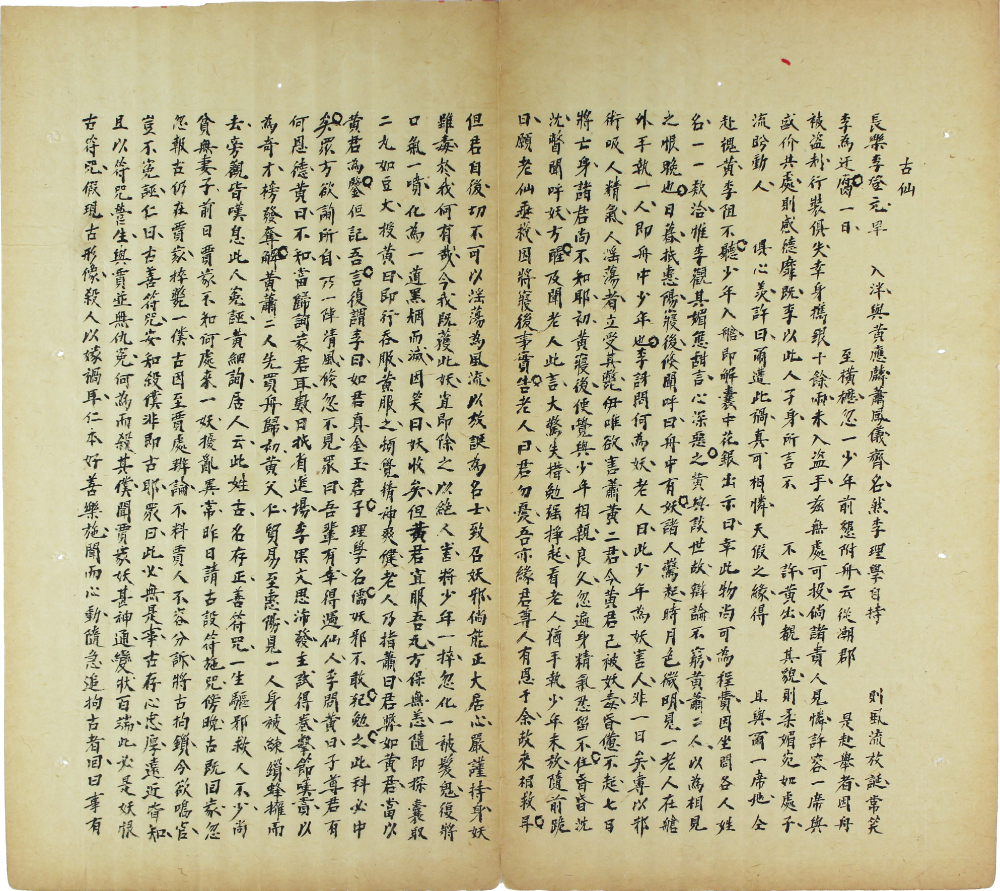 古仙
長樂李登元早 入泮與黃應麟蕭鳳儀齊名然李理學自持 則風流放誕常笑
李為迂腐一日 至橫樾忽一少年前懇附舟云從潮郡 是赴樂者因舟
被盜利行裝俱失幸身攜銀十餘兩未入盜手茲無處可投倘諸貴人見憐許容一席與
盛价共處則感德靡既李以此人孑身所言不 不許黃出覩其貌則柔媚宛如處子
流盻動人 俱心羙許曰爾遭此禍真可相憐天假之緣得 且與爾一席地仝
赴禩黃李阻不聽少年入艙即解囊中花銀出示曰幸此物尚可為程費因坐問各人姓
名一一欵洽惟李觀其媚態甜言心深惡之黃與談世故辯論不窮黃蕭二人以為相見
之恨晚也日暮抵惠陽寢後倏聞呼曰舟中有妖諸人驚起時月色微明見一老人在艙
外手執一人即舟中少年也李訝問何為妖老人曰此少年為妖害人非一日矣專以邪
術吸人精氣人淫蕩者立受其斃毋唯欲害蕭黃二君今黃君已被妖毒昏僊不起七日
將亡身諸君尚不知耶初黃寢後便覺與少年相親良久忽遍身精氣悉留不住昏昏沈
沈瞥聞呼妖方醒及聞老人此言大驚失措勉強掙起看老人猶手執少年未放隨前跪
曰願老仙垂救因將寢後事實告老人曰君勿憂吾亦緣君尊人有恩于余故來相救耳
但君自後切不可以淫蕩為風流以放誕為名士致召妖邪倘能正大居心嚴謹持身妖
雖毒於我何有哉今我既獲此妖宜即除之以絕人害將少年一捽忽化一被髮鬼復將
口氣一噴化為一道黑烟而滅因笑曰妖收矣但黃君宜服吾丸方保無恙隨即探囊取
二丸如豆大授黃曰即行吞服黃服之頓覺精神爽健老人乃指蕭曰君弊如黃君當以
黃君為鑒但記吾言復謂李曰如君真金玉君子理學名儒妖邪不敢犯勉之此科必中
矣眾方欲詢所自乃一陣清風倏忽不見眾曰吾輩有幸得遇仙人李問黃曰子尊君有
何恩德黃曰不知當歸詢家君耳數日抵省進場李果文思沛發主試得卷擊節嘆賞以
為奇才榜發奪解黃蕭二人先買舟歸初黃父仁貿易至惠陽見一人身被練鎖蜂擁而
去旁觀皆嘆息此人冤誣黃細詢居人云此姓古名存正善符咒一生驅邪救人不少尚
貧無妻子前日賈家不知何處來一妖擾亂異常昨日請古設符施咒傍晚古既回家忽
忽報古仍在賈家捽斃一僕古因至賈處辨論不料貴人不容分訴將古拘鎖今欲鳴官
豈不冤誣仁曰古善符咒安知殺僕非即古耶眾曰此必無是事古存心忠厚遠近皆知
且以符咒營生與賈並無仇冤何為而殺其僕聞賈家妖甚神通變狀百端此必是妖恨
古符咒假現古形像殺人以嫁禍耳仁本好善樂施聞而心動隨急追拘古者回曰事有